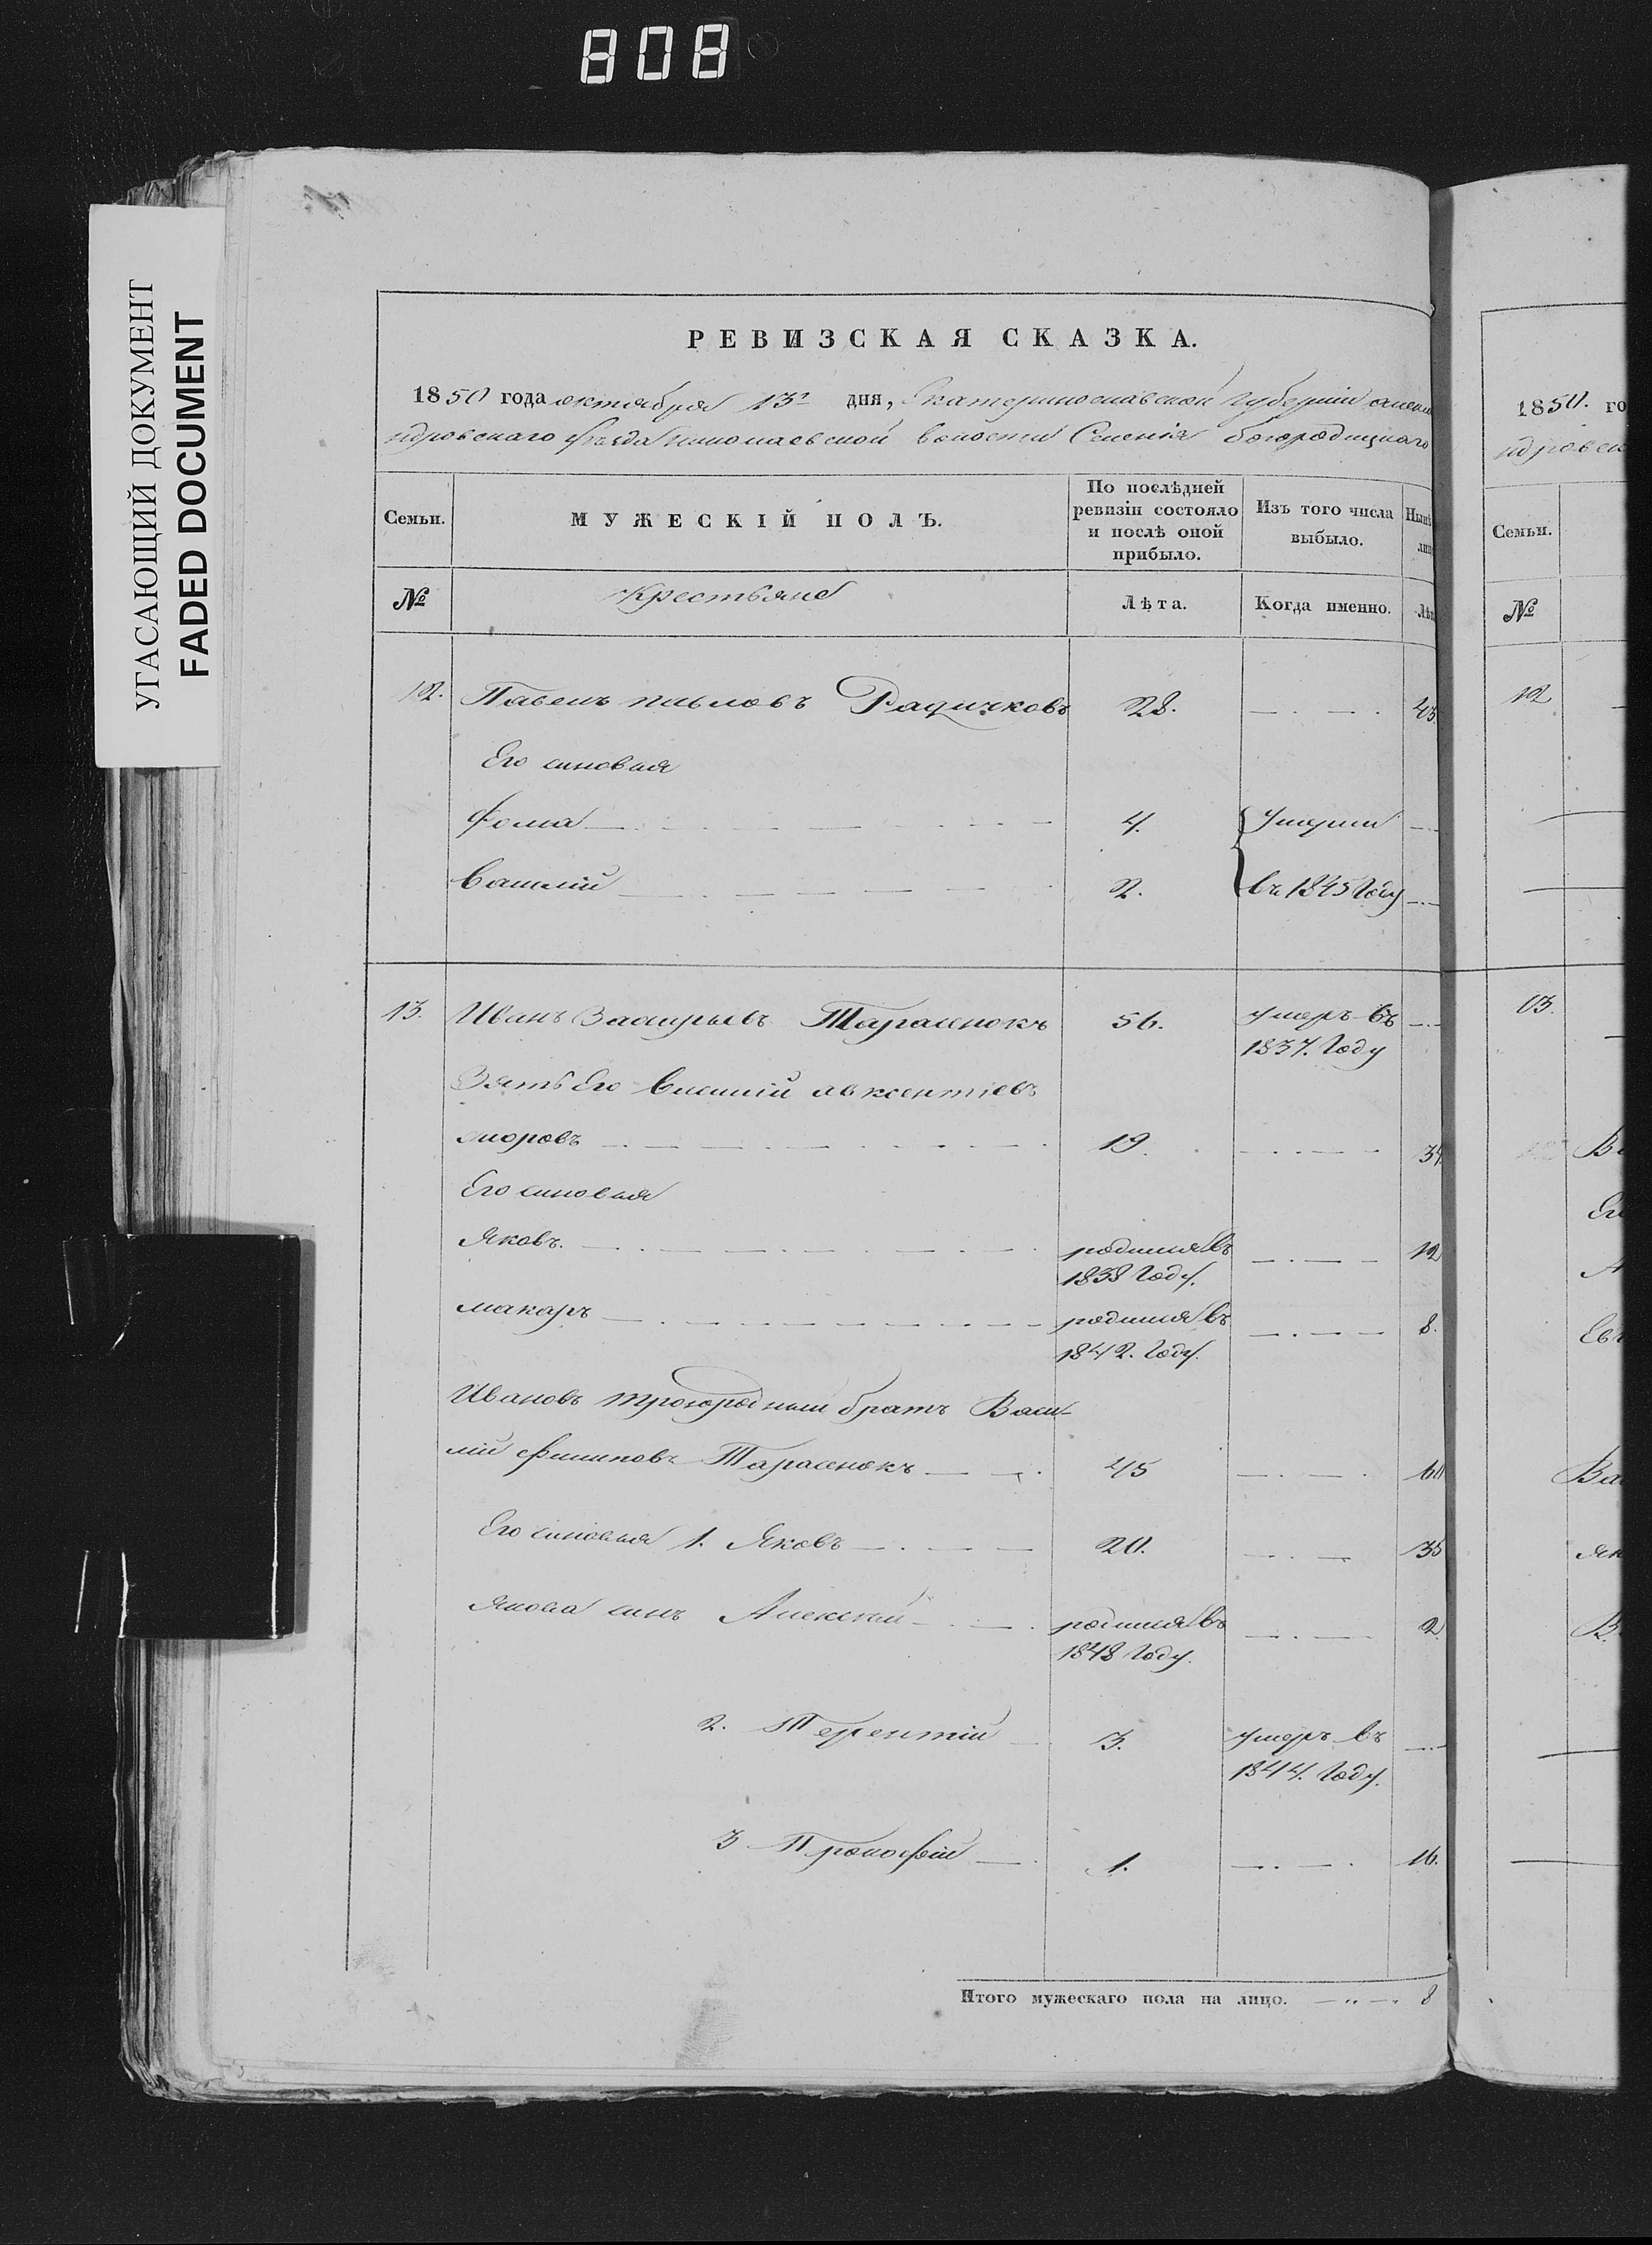 808
УГАСАЮЩИЙ ДОКУМЕНТ
FADED DOCUMENT
РЕВИЗСКАЯ СКАЗКА.
1850 года октября 13го дня, Екатеринославской Губерніи алекса
ндровскаго Уѣзда николаевской волости Селенія богородицкаго
Семьи.
МУЖЕСКІЙ ПОЛЪ.
По послѣдней
ревизіи состояло
и послѣ оной
прибыло.
Изъ того числа
выбыло.
Нынѣ
лиц
№
Крестьяне
Лѣта.
Когда именно.
Лѣт
12. Павелъ павловъ 28. 43
Его синовья
фома 4. Умерли
василій 2. въ 1845 Году
13. Иванъ Тарасенокъ 56. умеръ въ
1837. Году
Зять Его Василій авксентіевъ
19. 34.
Его синовья
Яковъ. родился въ 12
1838 Году.
макаръ родился въ 8.
1842. Году.
Ивановъ троюродный братъ Васи-
лій Филиповъ Тарасенокъ 45 60
Его синовья 1. Яковъ 20. 35
Якова синъ Алексѣй родился въ 2.
1848 Году.
2. Терентій 3. умеръ въ
1844. Году.
3 Прокофій 1. 16.
Итого мужескаго пола на лицо. 8
1850. го
ндровск
Семьи.
№
12
13.
Ва